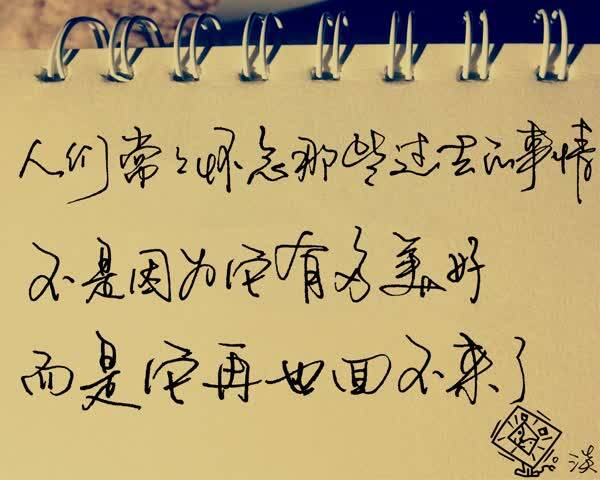 人们常々怀念那些过去的事情
不是因为它有多美好
而是它再也回不来了
淡